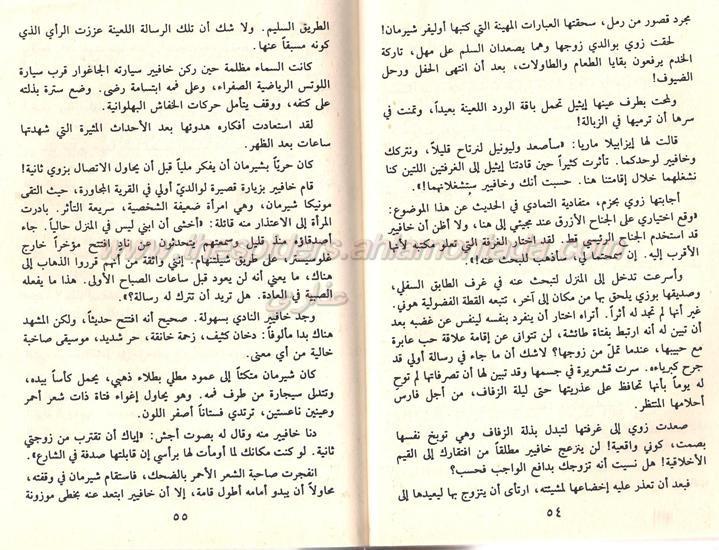 مجرد قصور من رمل، سحقتها العبارات المهينة التي كتبها أوليفر شيرمان!
لحقت زوي بوالدي زوجها وهما يصعدان السلم على مهل، تاركة
الخدم يرفعون بقايا الطعام والطاولات، بعد أن انتهى الحفل ورحل
الضيوف!
ولمحت بطرف عينها إيثيل تحمل باقة الورد اللعينة بعيداً، وتمنت في
سرها أن ترميها في الزبالة!
قالت لها إيزابيلا ماريا: «سأصعد وليونيل لنرتاح قليلاً، ونتركك
وخافيير لوحدكما. تأثرت كثيراً حين قادتنا إيثيل إلى الغرفتين اللتين كنا
نشغلهما خلال إقامتنا هنا. حسبت أنك وخافيير ستشغلانهما!».
أجابتها زوي بحزم، متفادية التمادي في الحديث عن هذا الموضوع:
«وقع اختياري على الجناح الأزرق عند مجيئي إلى هنا، ولا أظن أن خافيير
قد استخدم الجناح الرئيسي قط. لقد اختار الغرفة التي تعلو مكتبه لأنها
الأقرب إليه. إن سمحت لي، سأذهب للبحث عنه!».
وأسرعت تدخل إلى المنزل لتبحث عنه في غرف الطابق السفلي،
وصديقها بوزي يلحق بها من مكان إلى آخر، تتبعه القطة الفضولية هوني.
غير أنها لم تجد له أثراً. أتراه اختار أن ينفرد بنفسه لينفس عن غضبه بعد
أن تبين له أنه ارتبط بفتاة طائشة، لن تتوانى عن إقامة علاقة حب عابرة
مع حبيبها، عندما تملّ من زوجها؟ لاشك أن ما جاء في رسالة أولي قد
جرح كبرياءه. سرت قشعريرة في جسمها وقد تبين لها أن تصرفاتها لم توحِ
له يوماً بأنها تحافظ على عذريتها حتى ليلة الزفاف، من أجل فارس
أحلامها المنتظر.
صعدت زوي إلى غرفتها لتبدل بذلة الزفاف وهي توبخ نفسها
بصمت، كوني واقعية! لن ينزعج خافيير مطلقاً من افتقارك إلى القيم
الأخلاقية! هل نسيت أنه تزوجك بدافع الواجب فحسب؟
فبعد أن تعذر عليه إخضاعها لمشيئته، ارتأى أن يتزوج بها ليعيدها إلى
٥٤
الطريق السليم. ولا شك أن تلك الرسالة اللعينة عززت الرأي الذي
كونه مسبقاً عنها.
كانت السماء مظلمة حين ركن خافيير سيارته الجاغوار قرب سيارة
اللوتس الرياضية الصفراء، وعلى فمه ابتسامة رضى. وضع سترة بذلته
على كتفه، ووقف يتأمل حركات الخفاش البهلوانية.
لقد استعادت أفكاره هدوئها بعد الأحداث المثيرة التي شهدتها
ساعات بعد الظهر.
كان حريّاً بشيرمان أن يفكر ملياً قبل أن يحاول الاتصال بزوي ثانية!
قام خافيير بزيارة قصيرة لوالديّ أولي في القرية المجاورة، حيث التقى
مونيكا شيرمان، وهي امرأة ضعيفة الشخصية، سريعة التأثر. بادرت
المرأة إلى الاعتذار منه قائلة: «أخشى أن ابني ليس في المنزل حالياً. جاء
أصدقاؤه منذ قليل وسمعتهم يتحدثون عن نادٍ افتتح مؤخراً خارج
غارستون، على طريق شيلتنهام. إنني واثقة من أنهم قرروا الذهاب إلى
هناك، ما يعني أنه لن يعود قبل ساعات الصباح الأولى. هذا ما يفعله
الصبية في العادة. هل تريد أن تترك له رسالة؟».
وجد خافيير النادي بسهولة. صحيح أنه افتتح حديثاً، ولكن المشهد
هناك بدا مألوفاً: دخان كثيف، زحمة خانقة، حر شديد، موسيقى صاخبة
خالية من أي معنى.
كان شيرمان متكئاً إلى عمود مطلي بطلاء ذهبي، يحمل كأساً بيده،
وتتدلى سيجارة من طرف فمه. وهو يحاول إغواء فتاة ذات شعر أحمر
وعينين ناعستين، ترتدي فستاناً أصفر اللون.
دنا خافيير منه وقال له بصوت أجش: «إياك أن تقترب من زوجتي
ثانية. لو كنت مكانك لما أومأت لها برأسي إن قابلتها صدفة في الشارع».
انفجرت صاحبة الشعر الأحمر بالضحك، فاستقام شيرمان في وقفته،
محاولاً أن يبدو أمامه أطول قامة، إلا أن خافيير ابتعد عنه بخطى موزونة
٥٥